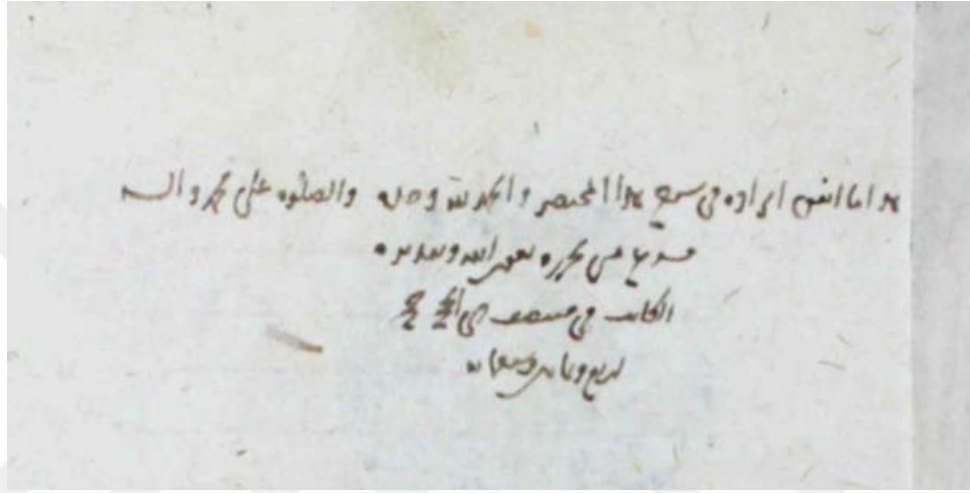 هذا ما اتفق ايراده في شرح هذا المختصر والحمد لله وحده والصلوه على محمد واله
فرغ من تحريره بعون الله
الكاتب في منتصف ذي الحجة
اربع وثمانين وسبعمائه